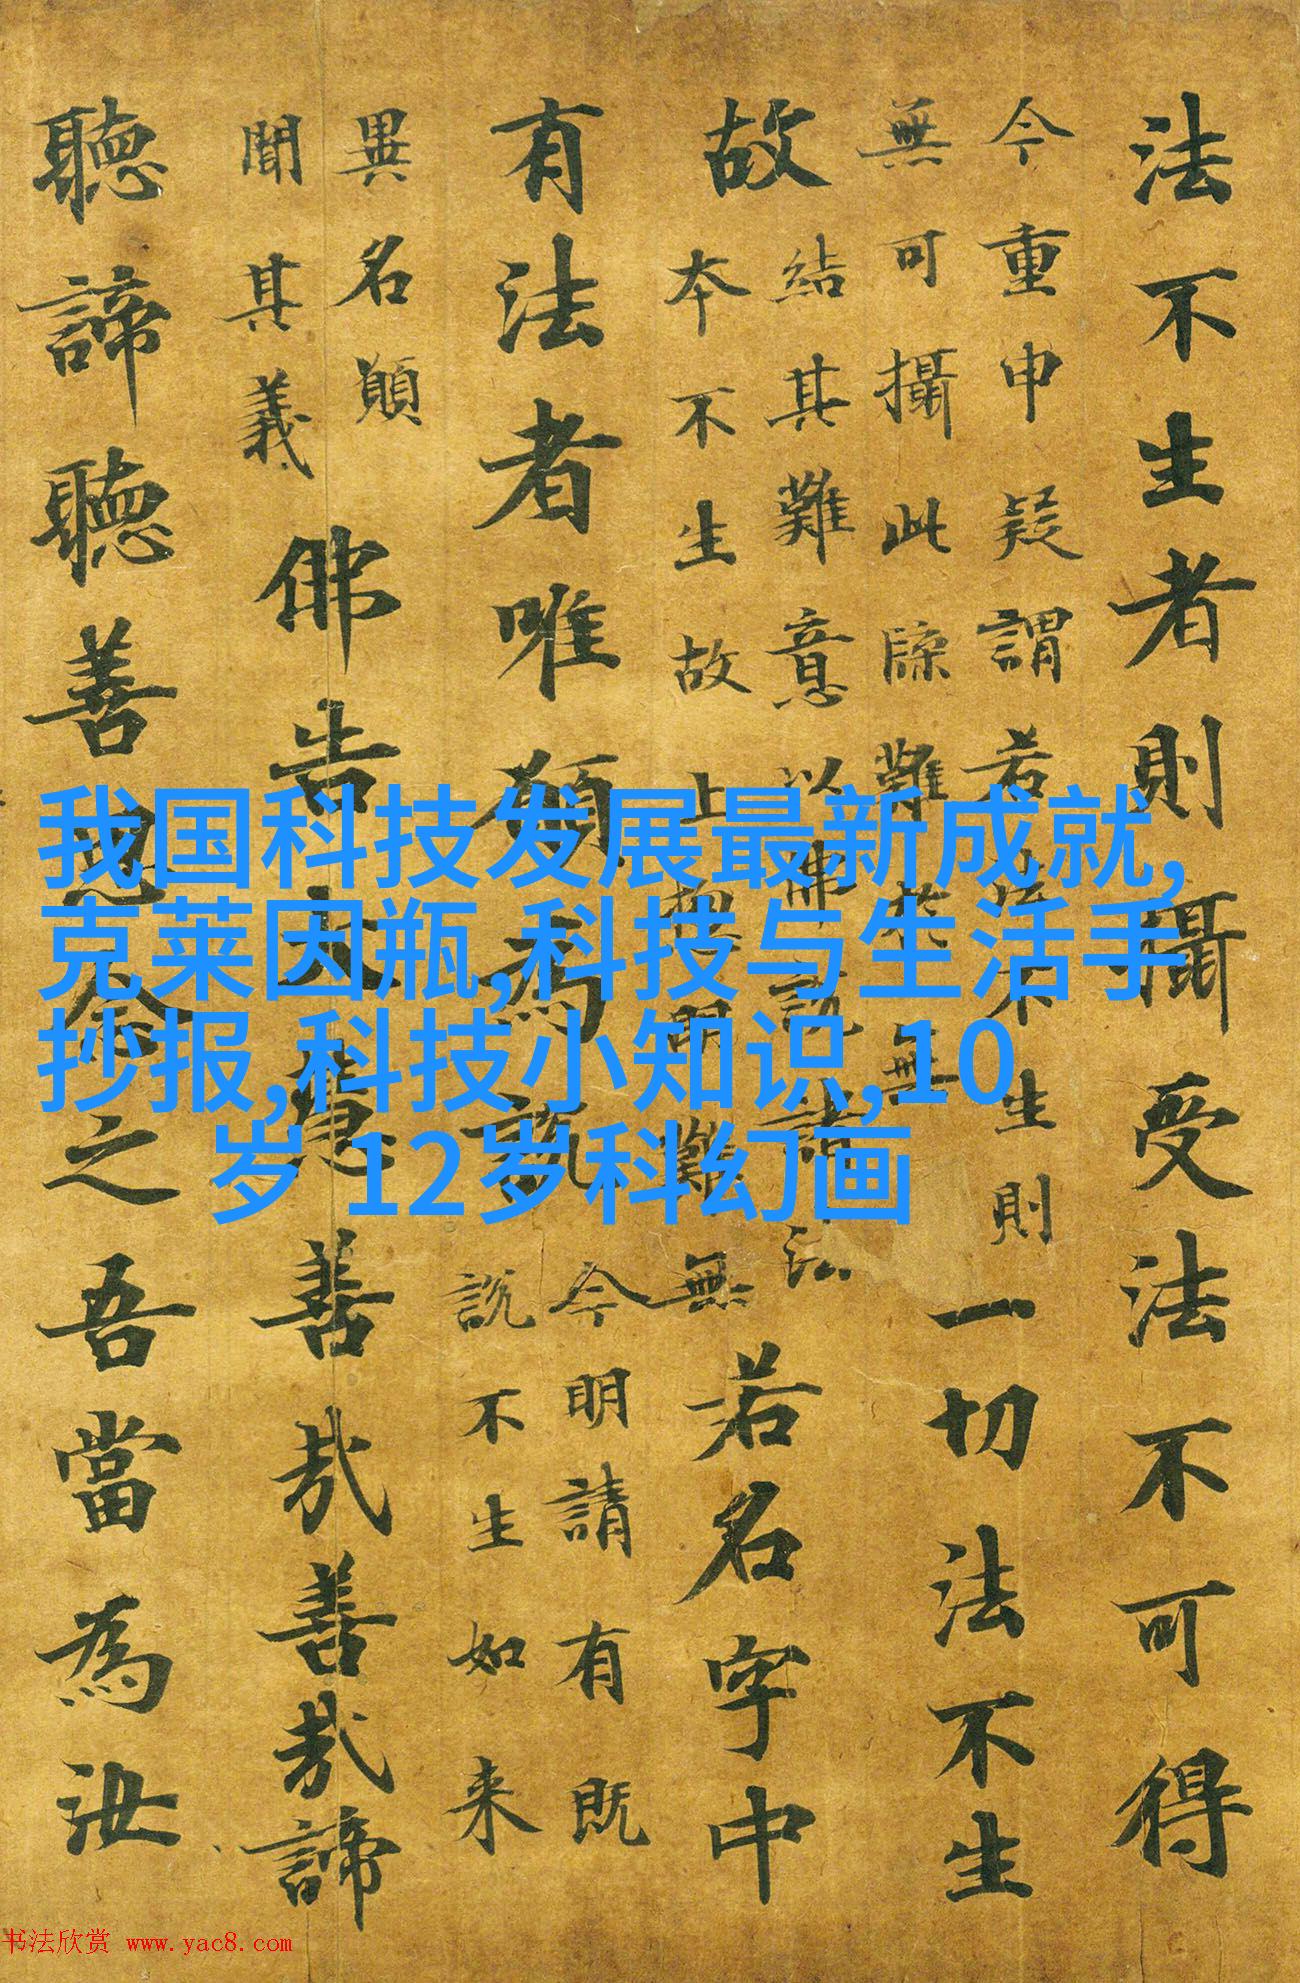 法不生者則攝受法不可得
今重申疑謂若不生則
無可攝此牒難於無
一切法不生
故
結其難意以佛說諸法
本不生故上明難無
若名字中
有法者唯願為說
今明請有既
說不生如来
異名願
聞其義
佛告大慧善哉善哉諦
聽諦聽善思念之吾當為汝
我国科技发展最新成就,
克莱因瓶,科技与生活手
抄报,科技小知识,10
岁 12岁科幻画
书法欣赏 www.yac8.com